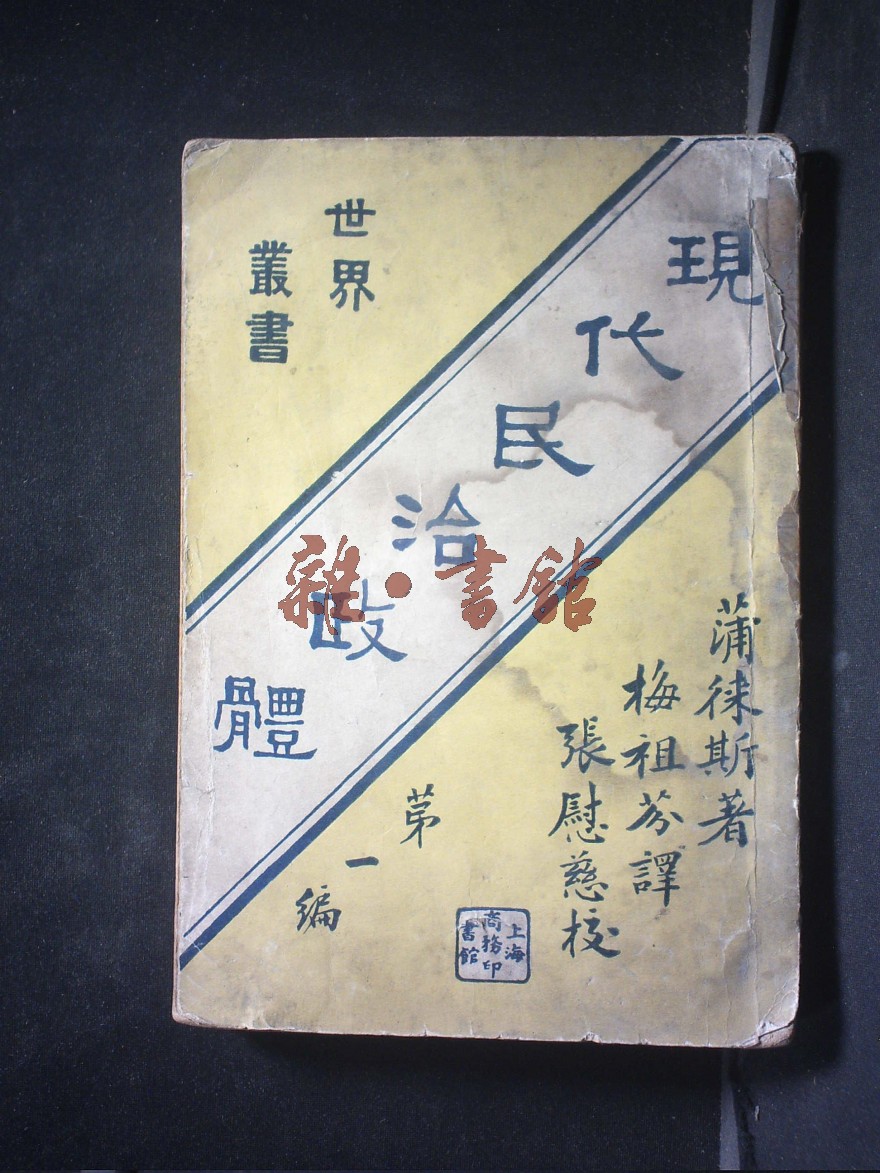 世界
叢書
現代民治政體
蒲徠斯著
梅祖芬譯
張慰慈校
第一編
上海
商務印
書館
雜·書館